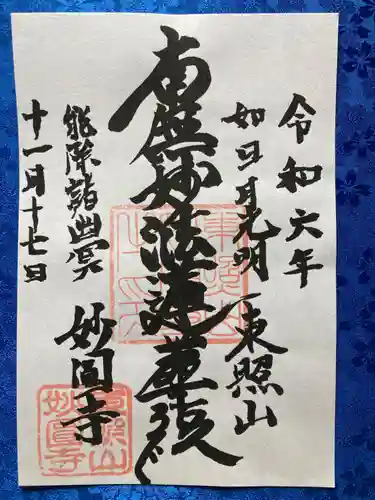 令和六年
如日月光明
東照山
南無妙法蓮華経
能除諸幽冥
妙圓寺
十一月十七日